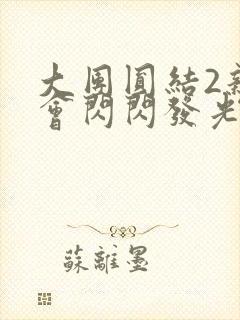 大團圓結2
會閃閃發光
蘇離墨